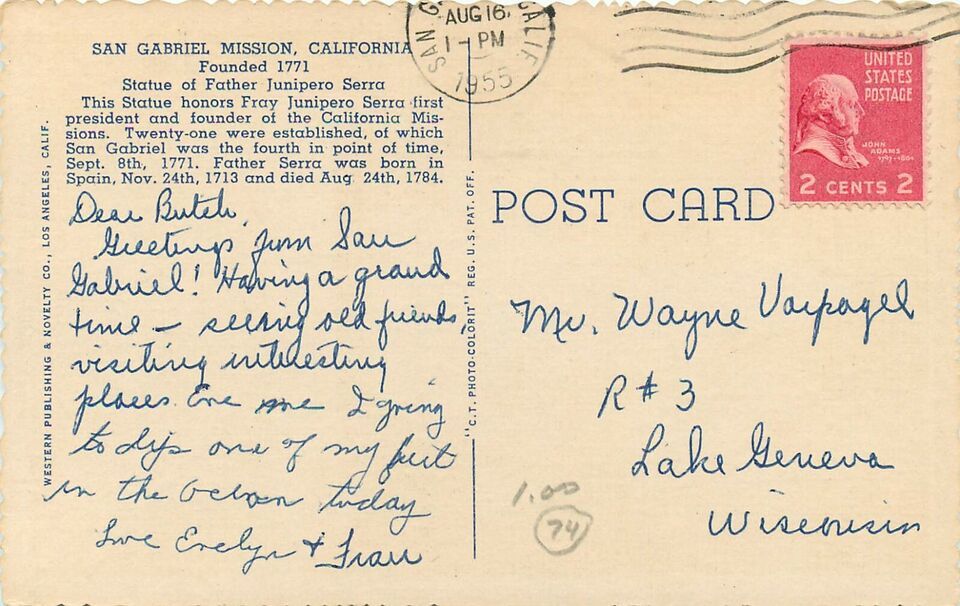 SAN GABRIEL MISSION, CALIFORNIA
Founded 1771
Statue of Father Junipero Serra
This Statue honors Fray Junipero Serra first
president and founder of the California Mis-
sions. Twenty-one were established, of which
San Gabriel was the fourth in point of time,
Sept. 8th, 1771. Father Serra was born in
Spain, Nov. 24th, 1713 and died Aug. 24th, 1784.
Dear Butch,
Greetings from San
Gabriel! Having a grand
time — seeing old friends,
visiting interesting
places. Eve me I going
to dip one of my feet
in the ocean today
Love Evelyn + Fran
WESTERN PUBLISHING & NOVELTY CO., LOS ANGELES, CALIF.
"C.T. PHOTO-COLORIT" REG. U.S. PAT. OFF.
SAN G CALIF
AUG 16,
1 - PM
1955
UNITED
STATES
POSTAGE
JOHN
ADAMS
1797-1801
2 CENTS 2
POST CARD
Mr. Wayne Varpagel
R # 3
Lake Geneva
Wisconsin
1.00
74